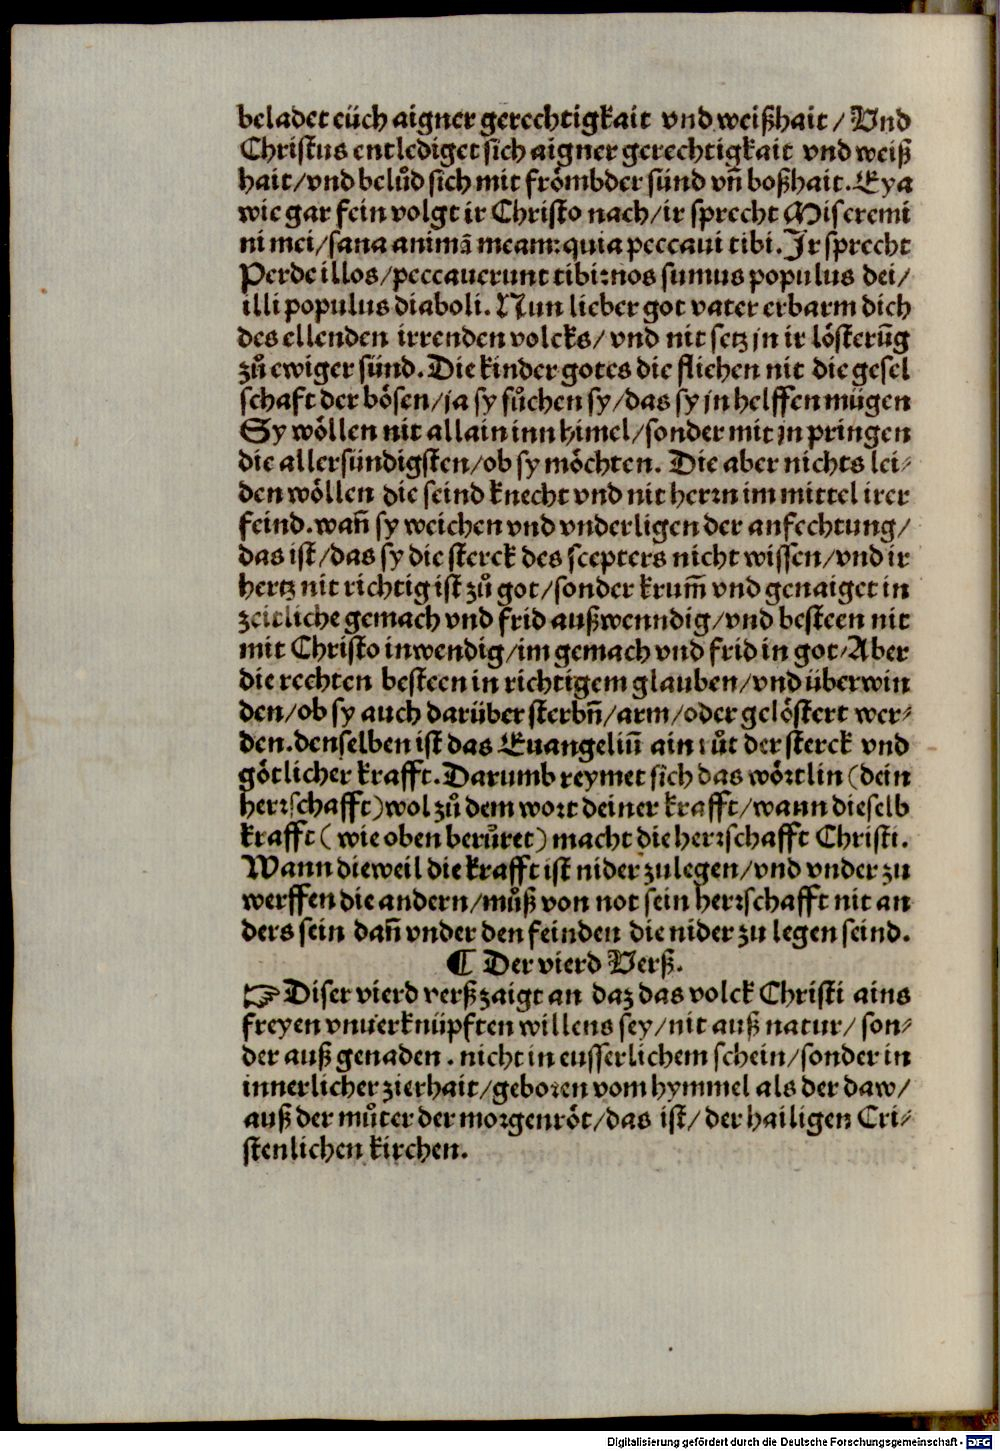 beladet eüch aigner gerechtigkait vnd weißhait / Vnd
Christus entlediget sich aigner gerechtigkait vnd weiß
hait/vnd belůd sich mit frömbder sünd vñ boßhait. Eya
wie gar fein volgt ir Christo nach/ir sprecht Miseremi
ni mei/sana animā meam:quia peccaui tibi. Ir sprecht
Perde illos/peccauerunt tibi:nos sumus populus dei/
illi populus diaboli. Nun lieber got vater erbarm dich
des ellenden irrenden volcks/ vnd nit setz jn ir lösterũg
zů ewiger sünd. Die kinder gotes die fliehen nit die gesel
schaft der bösen/ja sy sůchen sy/das sy jn helffen mügen
Sy wöllen nit allain inn himel/sonder mit jn pringen
die allersündigsten/ob sy möchten. Die aber nichts lei-
den wöllen die seind knecht vnd nit herrn im mittel irer
feind. wañ sy weichen vnd vnderligen der anfechtung/
das ist/das sy die sterck des scepters nicht wissen/vnd ir
hertz nit richtig ist zů got/sonder krum̃ vnd genaiget in
zeitliche gemach vnd frid außwenndig/vnd besteen nit
mit Christo inwendig/im gemach vnd frid in got/Aber
die rechten besteen in richtigem glauben/vnd überwin
den/ob sy auch darüber sterbñ/arm/oder gelöstert wer-
den. denselben ist das Euangeliũ ain růt der sterck vnd
götlicher krafft. Darumb reymet sich das wörtlin (dein
herrschafft) wol zů dem wort deiner krafft/wann dieselb
krafft ( wie oben berůret) macht die herrschafft Christi.
Wann dieweil die krafft ist nider zulegen/vnd vnder zu
werffen die andern/můß von not sein herrschafft nit an
ders sein dañ vnder den feinden die nider zu legen seind.
¶ Der vierd Verß.
☞ Diser vierd verß zaigt an daz das volck Christi ains
freyen vnuerknüpften willens sey/nit auß natur/ son-
der auß genaden . nicht in eusserlichem schein/sonder in
innerlicher zierhait/geboren vom hymmel als der daw/
auß der můter der morgenröt/das ist/ der hailigen Cri-
stenlichen kirchen.
Digitalisierung gefördert durch die Deutsche Forschungsgemeinschaft - DFG